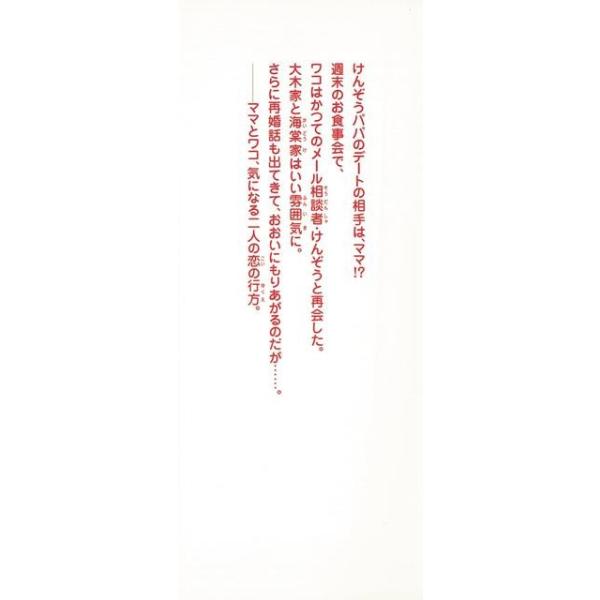 けんぞうパパのデートの相手は、ママ!?
週末のお食事会で、
ワコはかつてのメール相談者・けんぞうと再会した。
大木家と海棠家はいい雰囲気に。
さらに再婚話も出てきて、おおいにもりあがるのだが……。
――ママとワコ、気になる二人の恋の行方。